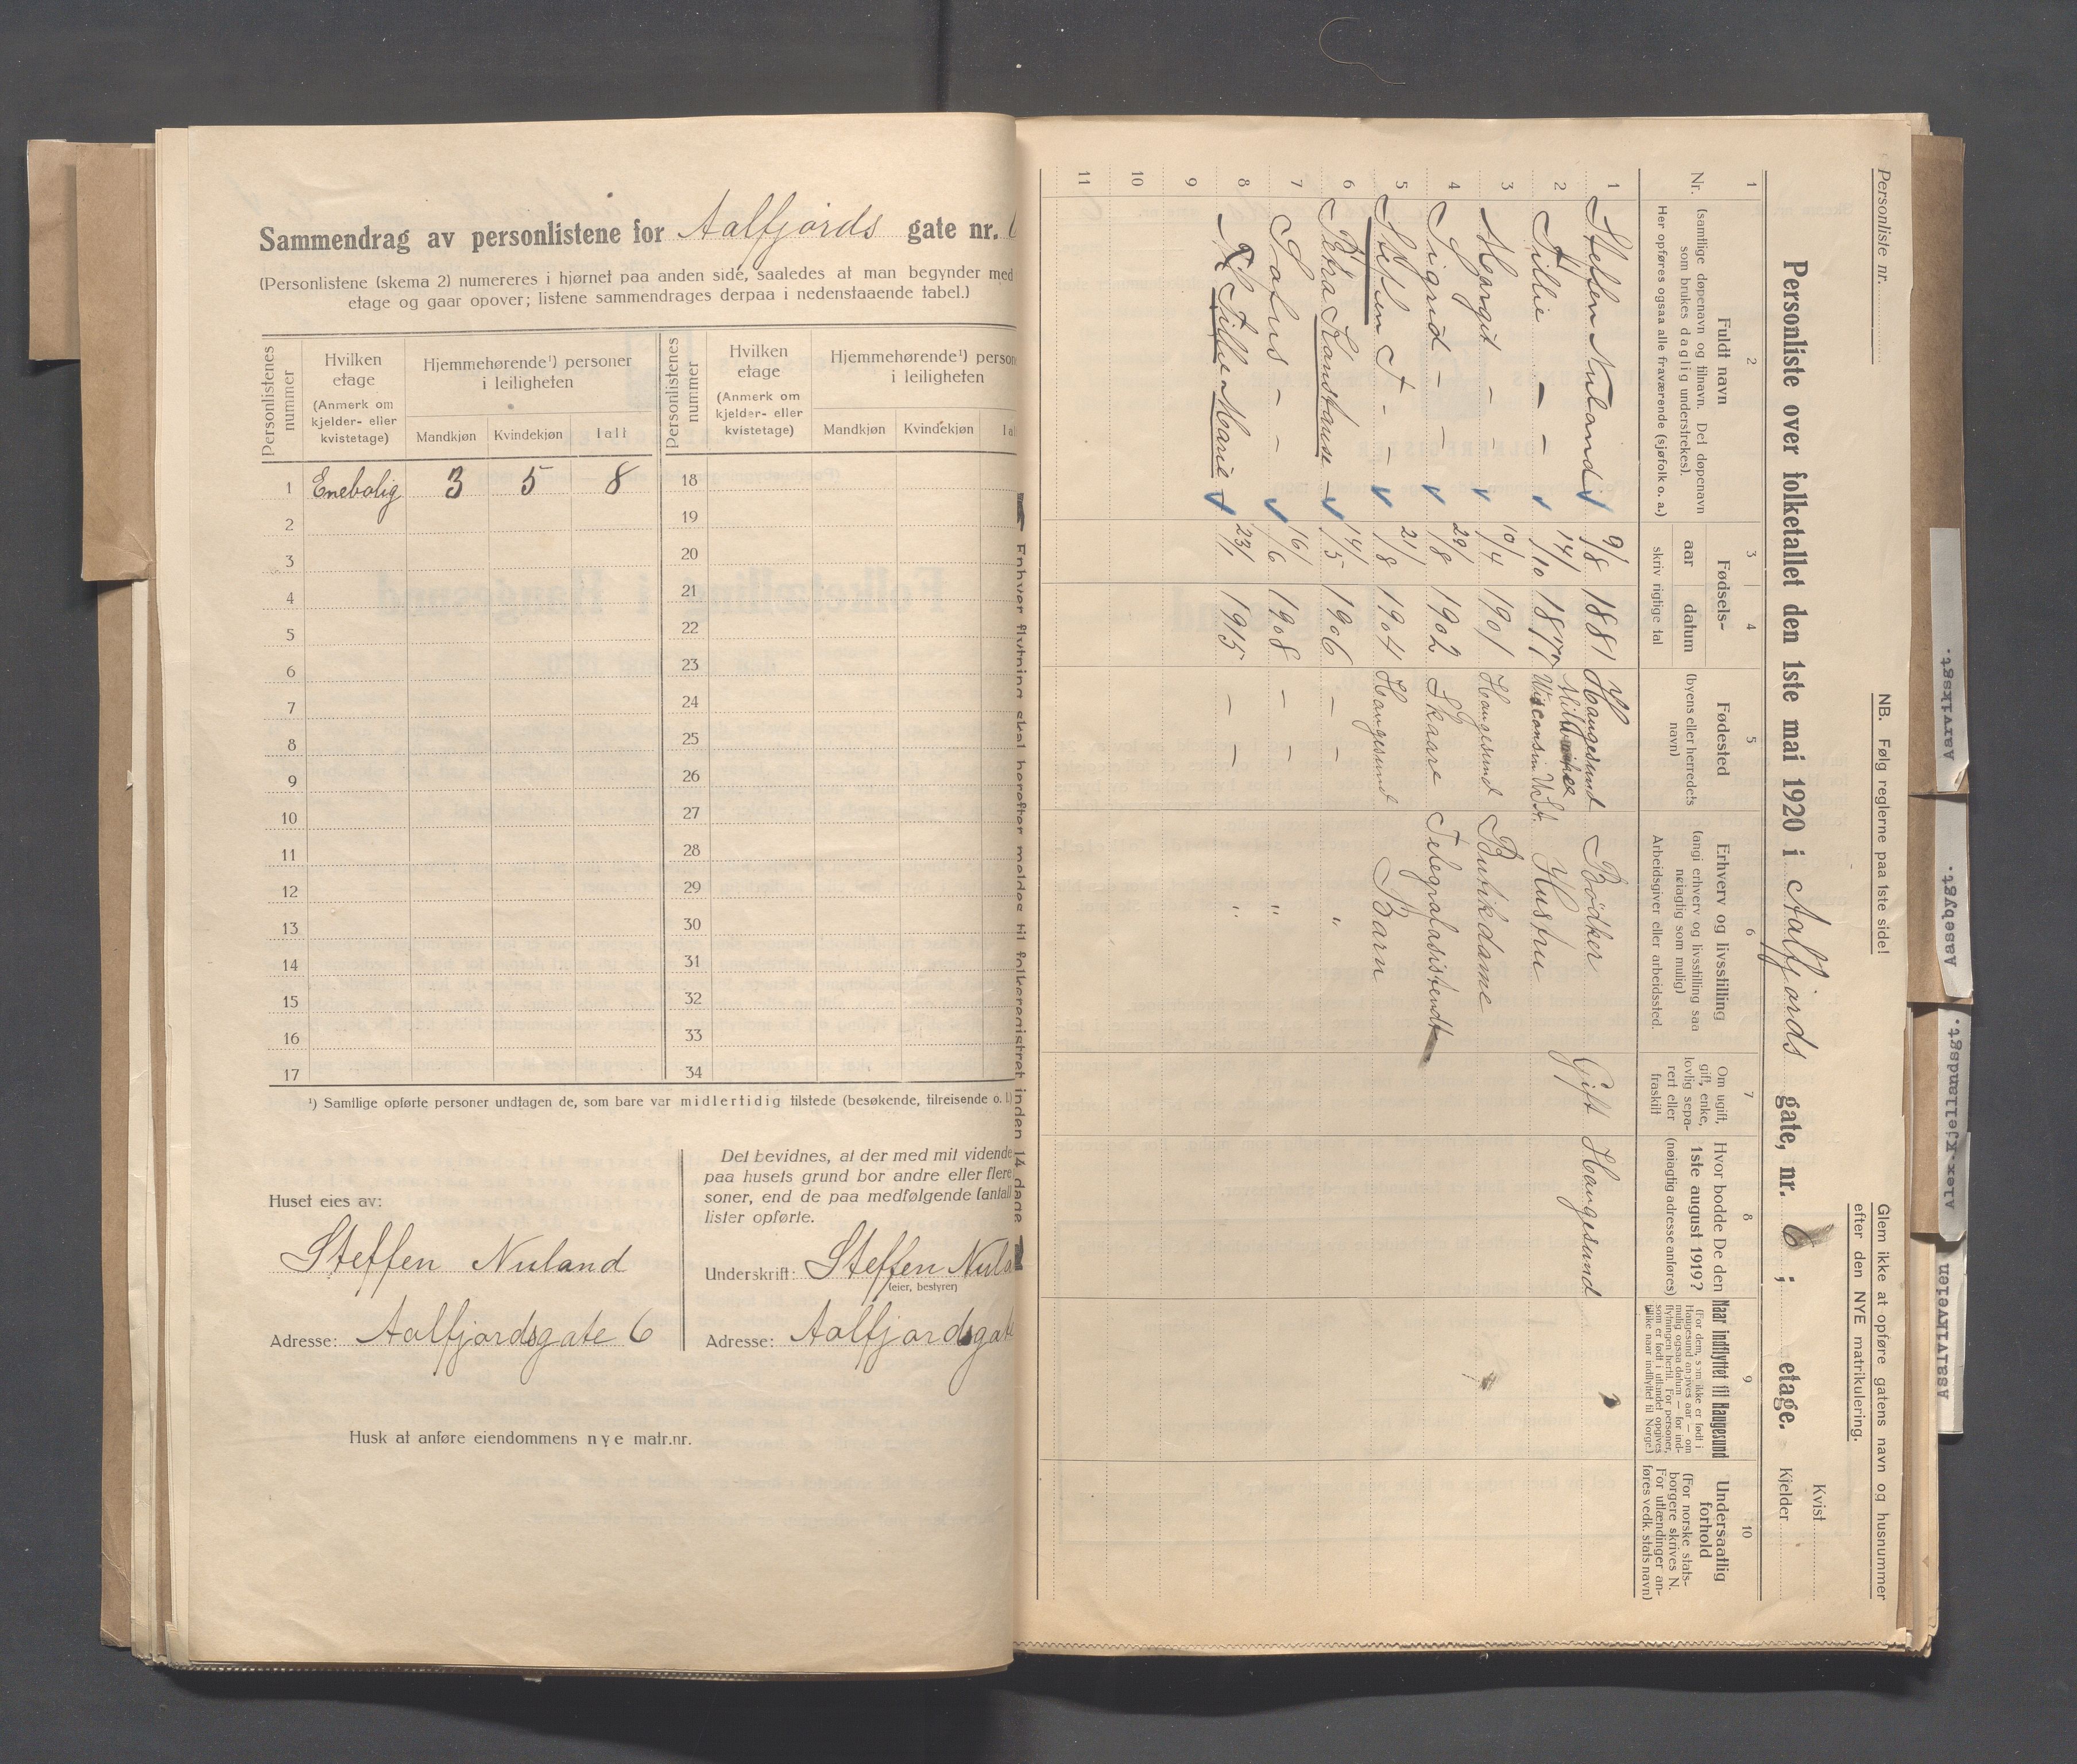 Sammendrag av personlistene for Aalfjords gate nr. 6
(Personlistene (skema 2) numereres i hjørnet paa anden side, saaledes at man begynder med
etage og gaar opover; listene sammendrages derpaa i nedenstaaende tabel.)
Personlistenes nummer
Hvilken etage
(Anmerk om kjelder- eller kvistetage)
Hjemmehørende¹) personer i leiligheten
Mandkjøn Kvindekjøn Ialt
Personlistenes nummer
Hvilken etage
(Anmerk om kjelder- eller kvistetage)
Hjemmehørende¹) persone
i leiligheten
Mandkjøn Kvindekjøn Ial
1 Enebolig 3 5 8 18
2 19
3 20
4 21
5 22
6 23
7 24
8 25
9 26
10 27
11 28
12 29
13 30
14 31
15 32
16 33
17 34
¹) Samtlige opførte personer undtagen de, som bare var midlertidig tilstede (besøkende, tilreisende o. l.)
Huset eies av:
Steffen Nuland
Adresse: Aalfjordsgate 6
Det bevidnes, at der med mit vidende
paa husets grund bor andre eller flere
soner, end de paa medfølgende (antall
lister opførte.
Underskrift: Steffen Nula
(eier, bestyrer)
Adresse: Aalfjordsgate
Husk at anføre eiendommens nye matr.nr.
Enhver flytning skal herefter meldes til folkeregistret inden 14 dage
Personliste nr.
NB. Følg reglerne paa 1ste side!
Glem ikke at opføre gatens navn og husnummer
efter den NYE matrikulering.
Kvist
Personliste over folketallet den 1ste mai 1920 i Aalfjords gate, nr. 6 ; etage.
Kjelder
1 2 3 4 5 6 7 8 9 10
Nr.
Fuldt navn
(samtlige døpenavn og tilnavn. Det døpenavn
som brukes daglig understrekes).
Her opføres ogsaa alle fraværende (sjøfolk o. a.)
Fødsels-
aar datum
skriv rigtige tal
Fødested
(byens eller herredets
navn)
Erhverv og livsstilling
(angi erhverv og livsstilling saa
nøiagtig som mulig)
Arbeidsgiver eller arbeidssted.
Om ugift,
gift, enke,
lovlig sepa-
rert eller
fraskilt
Hvor bodde De den
1ste august 1919?
(nøiagtig adresse anføres)
Naar indflyttet til Haugesund
(For dem, som ikke er født i
Haugesund anføres aar — om
mulig ogsaa datum — for ind-
flytningen hertil. For personer,
som er født i utlandet opgives
tillike naar indflyttet til Norge.)
Undersaatlig
forhold
(For norske stats-
borgere skrives N.
For utlændinger an-
føres vedk. stats navn)
1 Steffen Nuland 9/8 1881 Haugesund Bødker Gift Haugesund
2 Tillie - - 14/10 1877 Milwaukee Wisconsin U.St. Hustru
3 Margit - - 10/4 1901 Haugesund Butikdame
4 Sigrid - - 29/8 1902 Skaare Telegrafasistendt
5 Steffen T - - 21/8 1904 Haugesund Barn
6 Petra Konstanse - 14/5 1906 - - "
7 Sofus - - 16/6 1908 - - "
8 Tillie Marie 23/1 1915 - - "
9
10
11
Aarviksgt.
Aasebygt.
Alex.Kjellandsgt.
Asalvikveien